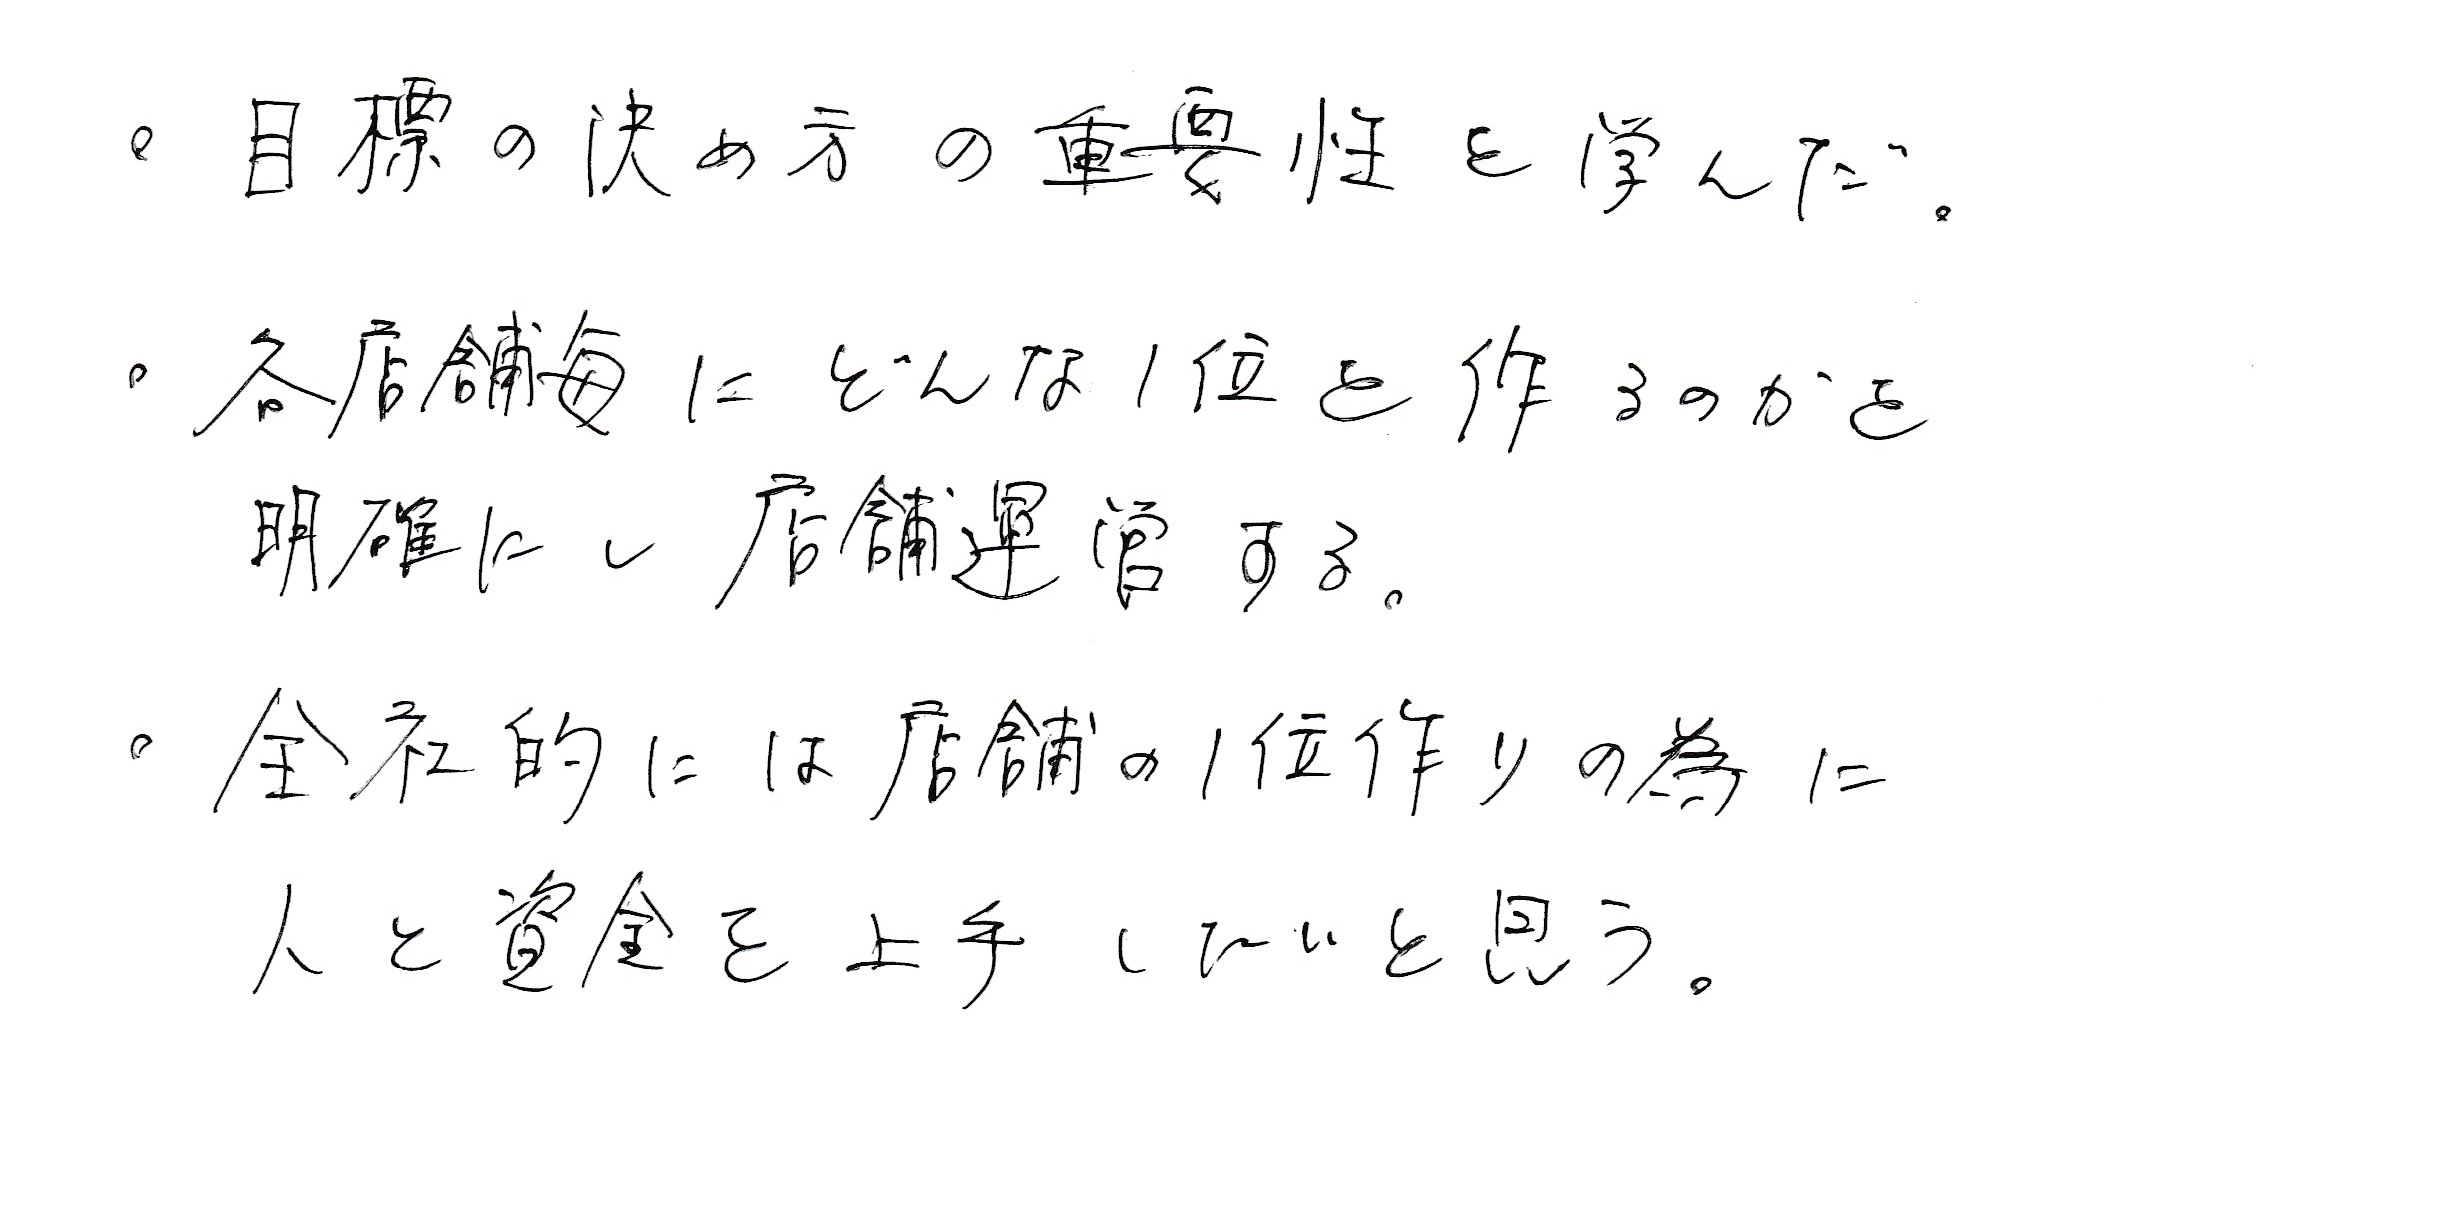 ・目標の決め方の重要性を学んだ。
・各店舗毎にどんな1位を作るのかを
明確にし店舗運営する。
・全社的には店舗の1位作りの為に
人と資金を上手したいと思う。